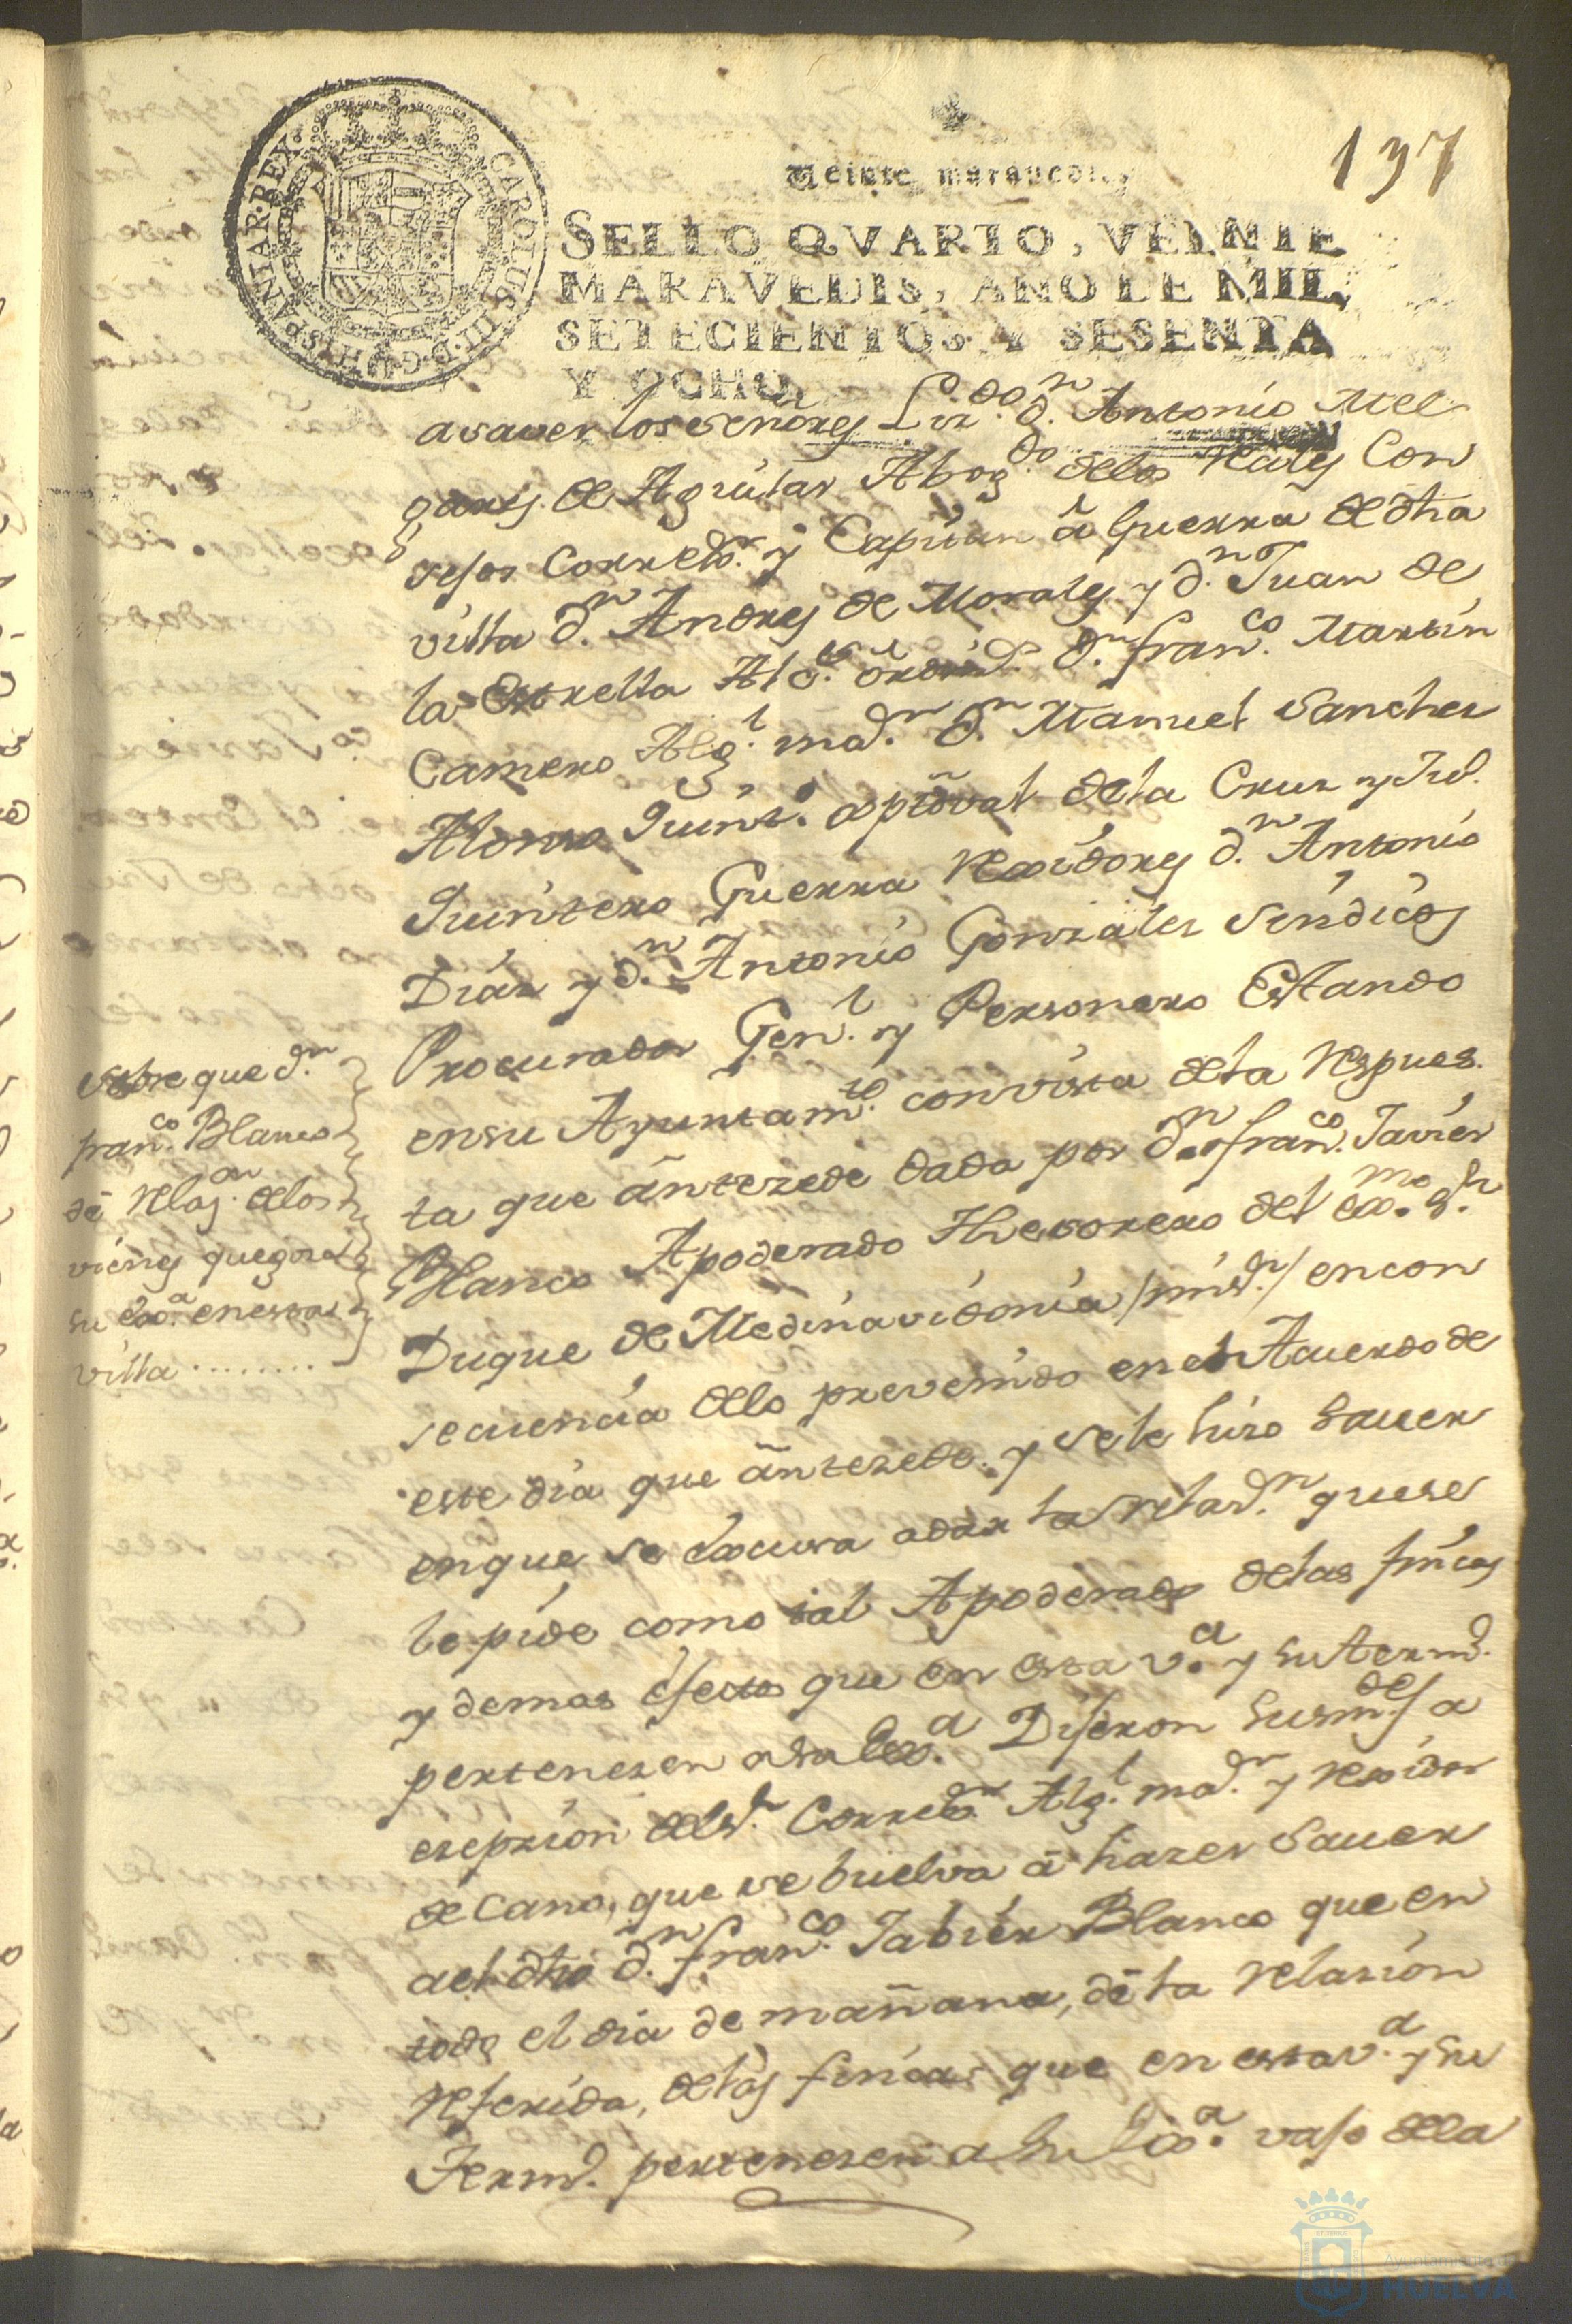 137
CAROLUS III D G HISPANIAR REX
Veinte maravedis
SELLO QVARTO, VEINTE
MARAVEDIS, AÑO DE MIL
SETECIENTOS Y SESENTA
Y OCHO.
asaver los señores Liz.do d.n Antonio Mel
garej. de Aguilar Abog.do delos Reales Con
sejos Correxr. y Capitan â Guerra de dha
villa d.n Andres de Morales y d.n Juan de
la Estrella Alc.es ordin.s d.n fran.co Martin
Camero Alg.l ma.or d.n Manuel Sanches
Alonso Quint.o aproval dela Crus y Jul.
Quintero Guerra Rexidores d.n Antonio
Dias y d.n Antonio Gonzales Sindicos
Procurador Gen.l y Personero Estando
ensu Ayuntam.to convista dela Respues.
ta que ânterede dada por d.n fran.co Javier
Blanco Apoderado Thesorero del exmo. S.r
Duque de Medinasidonia /mi s.r/ encon
secuencia delo prevenido enel Acuerdo de
este dia que ânterede. y sele hiso Saver
enque se êxcusa adar la relaz.n quese
le pide como tal Apoderado delas fincas
y demas êfectos que en esta v.a y su term.o
pertenesen a su Exa. Dijeron Susmd.es a
esepsion del S.r Correx.r Alg.l ma.or y Rexidor
de Cano, que se buelva â haser Saver
ael dho d.n fran.co Jabier Blanco que en
todo el dia de mañana, dê la Relasion
referida, delas fincas que en esta v.a y su
Term.o pertenesen a Su Exa. vajo dela
Sobre que d.n
fran.co Blanco
dê Relaz.on delos
vienes que goza
su Exa. en esta
villa ........
Ayuntamiento de
HUELVA